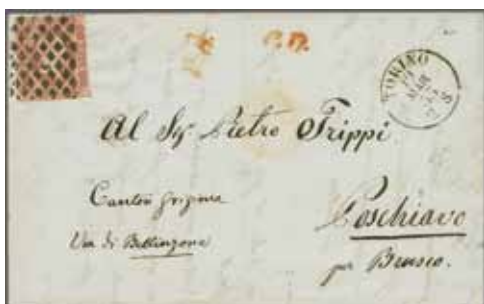 P.D.
C.D.
TORINO
MAR
Al Sig Pietro Trippi
Canton Grigione
Via di Bellinzona
Poschiavo
per Brusio.